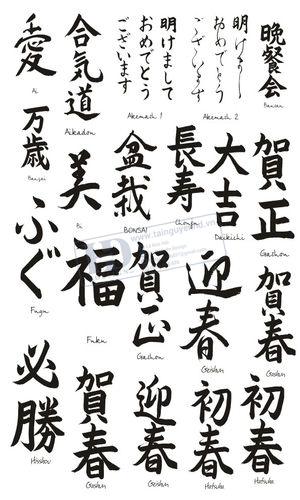 愛
Ai
合気道
Aikadou
明けまして
おめでとう
ございます
Akemash 1
明けまして
おめでとう
ございます
Akemash 2
晩餐会
Bansan
万歳
Banzai
美
Bi
盆栽
BONSAI
長寿
大吉
Daikichi
賀正
Gashou
ふぐ
Fugu
福
Fuku
賀正
Gashou
迎春
賀春
必勝
Hisshou
賀春
迎春
初春
初春